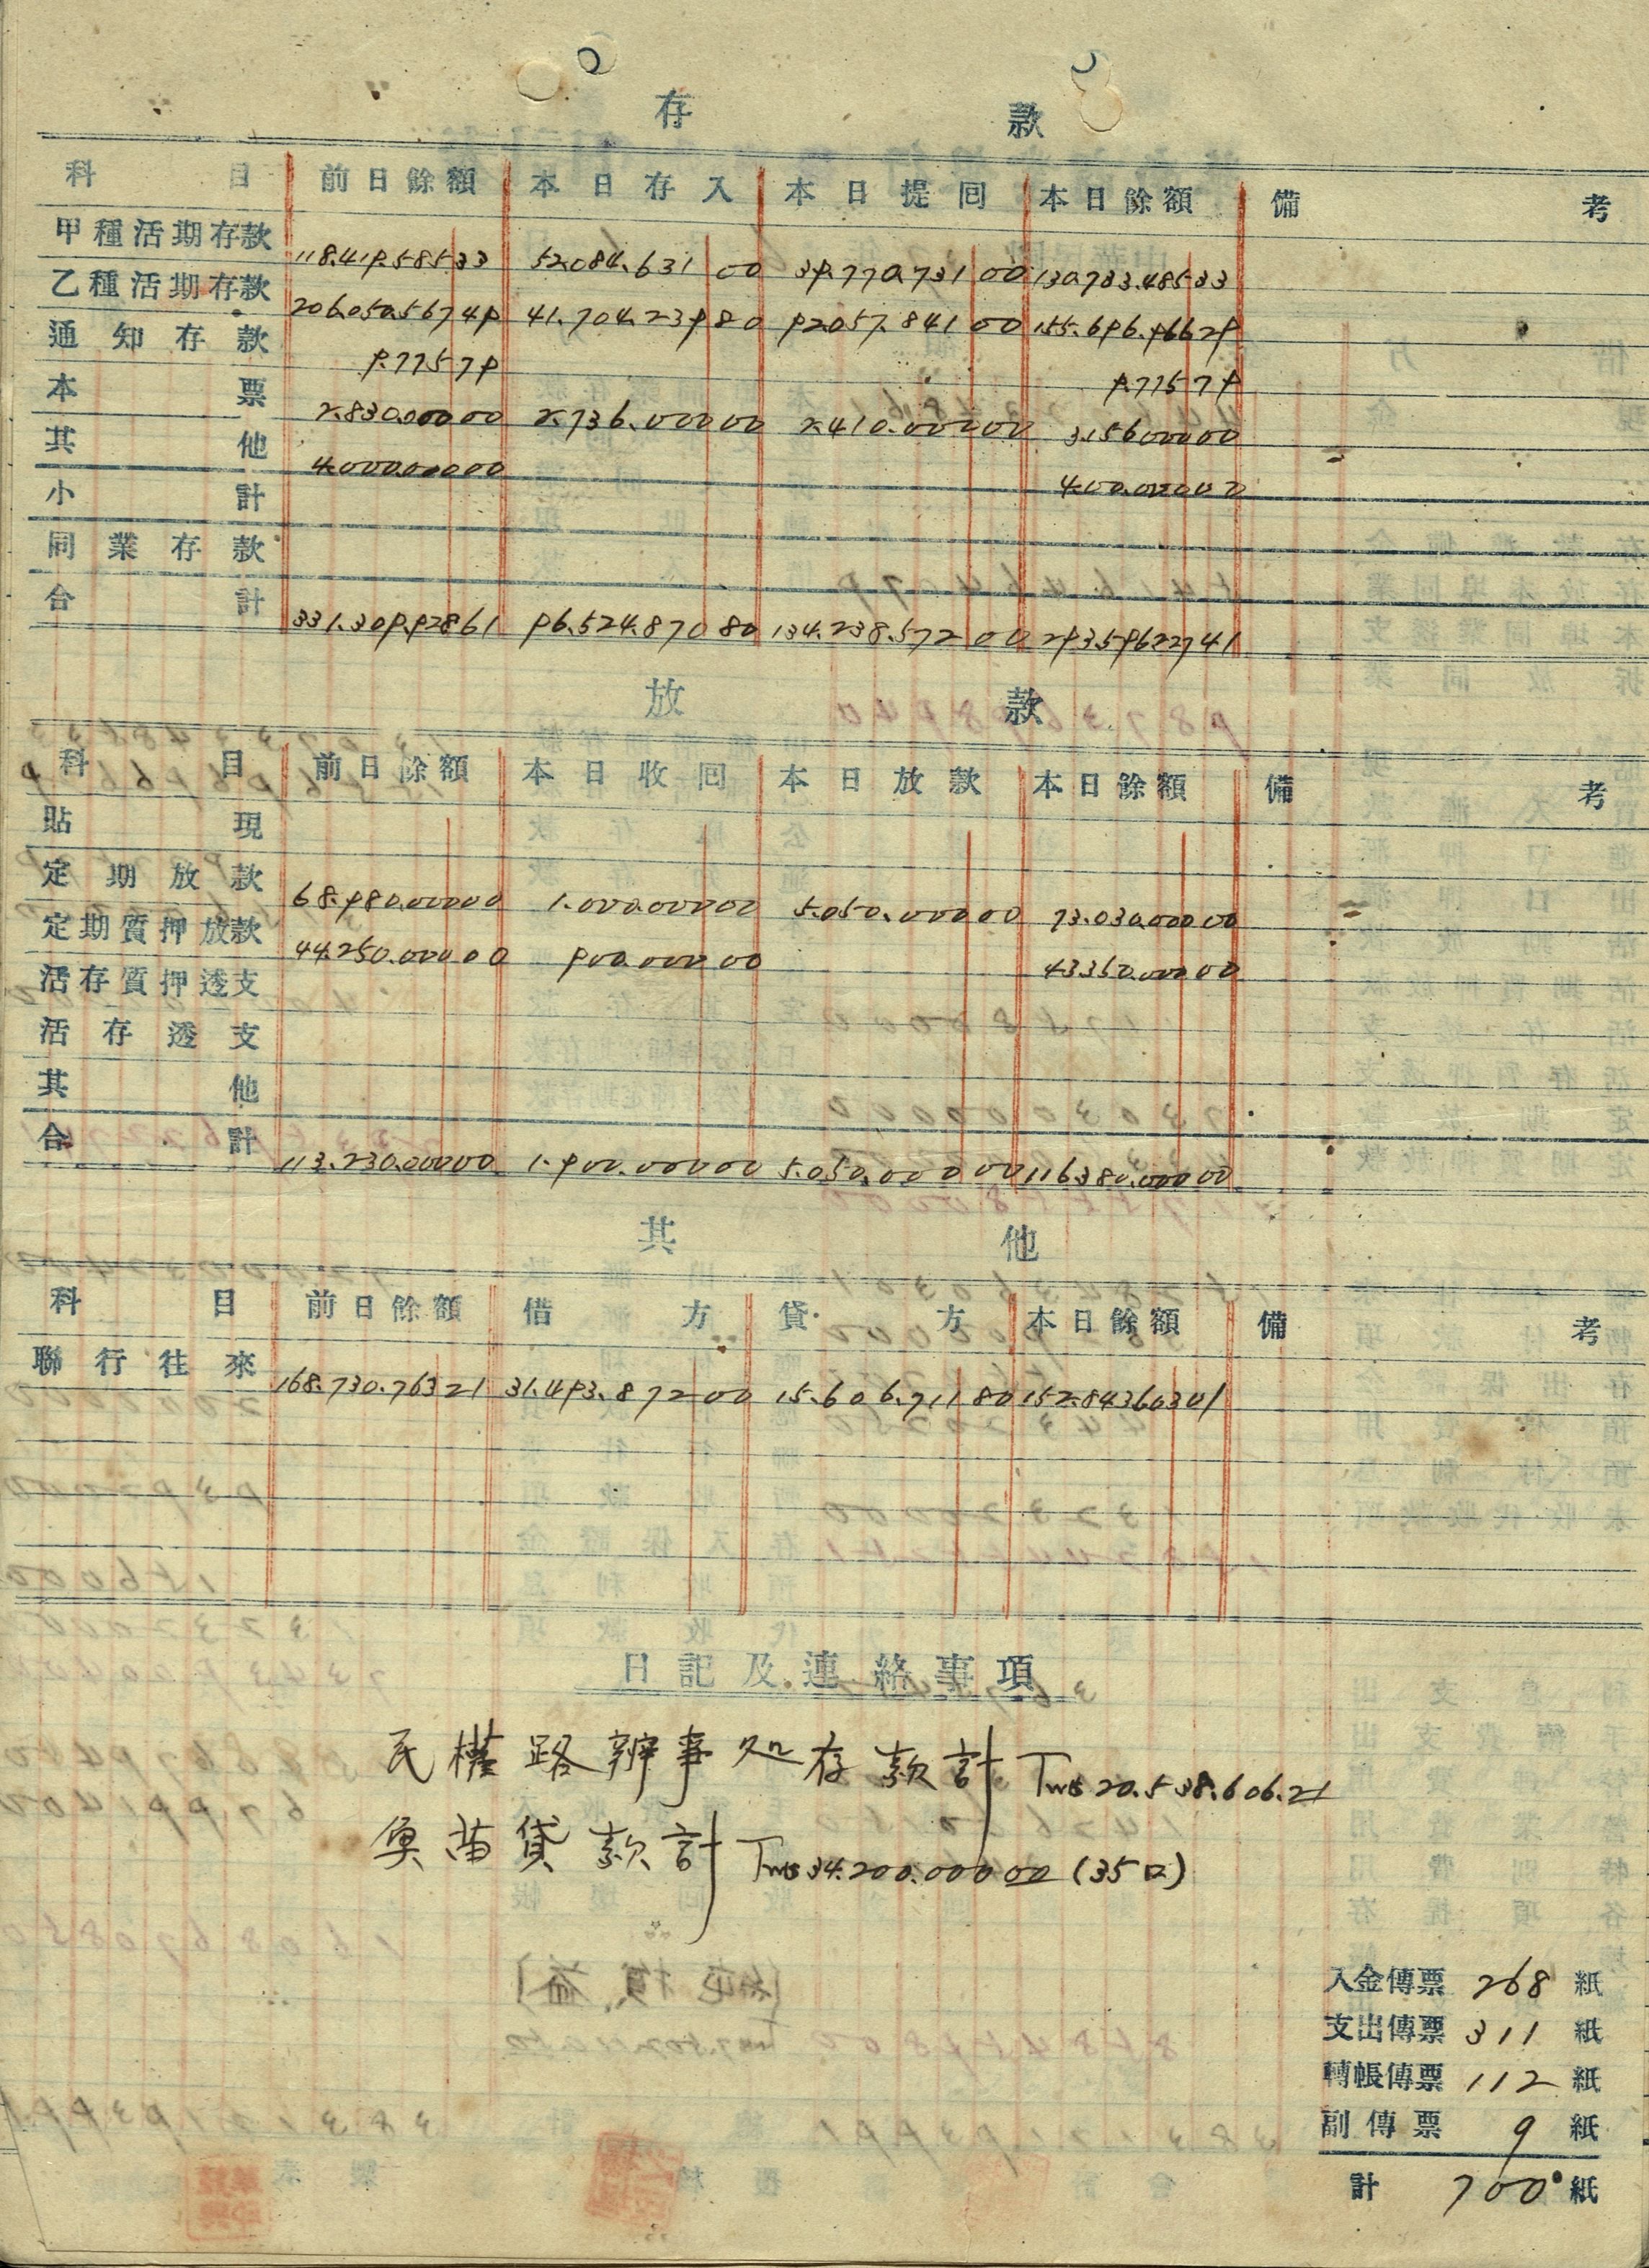 存 款
科目 前日餘額 本日存入 本日提回 本日餘額 備考
甲種活期存款 118.419.585 33 52.084.631 00 39.770.731 00 130.733.485 33
乙種活期存款 206.050.567 49 41.704.239 80 92.057.841 00 155.696.966 29
通知存款 9.775 79 9.775 79
本票 2.830.000 00 2.736.000 00 2.410.000 00 3.156.000 00
其他 4.000.000 00 4.000.000 00
小計
同業存款
合計 331.309.928 61 96.524.870 80 134.238.572 00 293.596.227 41
放 款
科目 前日餘額 本日收回 本日放款 本日餘額 備考
貼現
定期放款 68.980.000 00 1.000.000 00 5.050.000 00 73.030.000 00
定期質押放款 44.250.000 00 900.000 00 43.350.000 00
活存質押透支
活存透支
其他
合計 113.230.000 00 1.900.000 00 5.050.000 00 116.380.000 00
其 他
科目 前日餘額 借方 貸方 本日餘額 備考
聯行往來 168.730.763 21 31.493.872 00 15.606.711 80 152.843.603 01
日記及連絡事項
民權路辦事処存款計 TW$ 20.538.606.21
魚苗貸款計 TW$ 34.200.000 00 (35口)
入金傳票 268 紙
支出傳票 311 紙
轉帳傳票 112 紙
副傳票 9 紙
計 700 紙